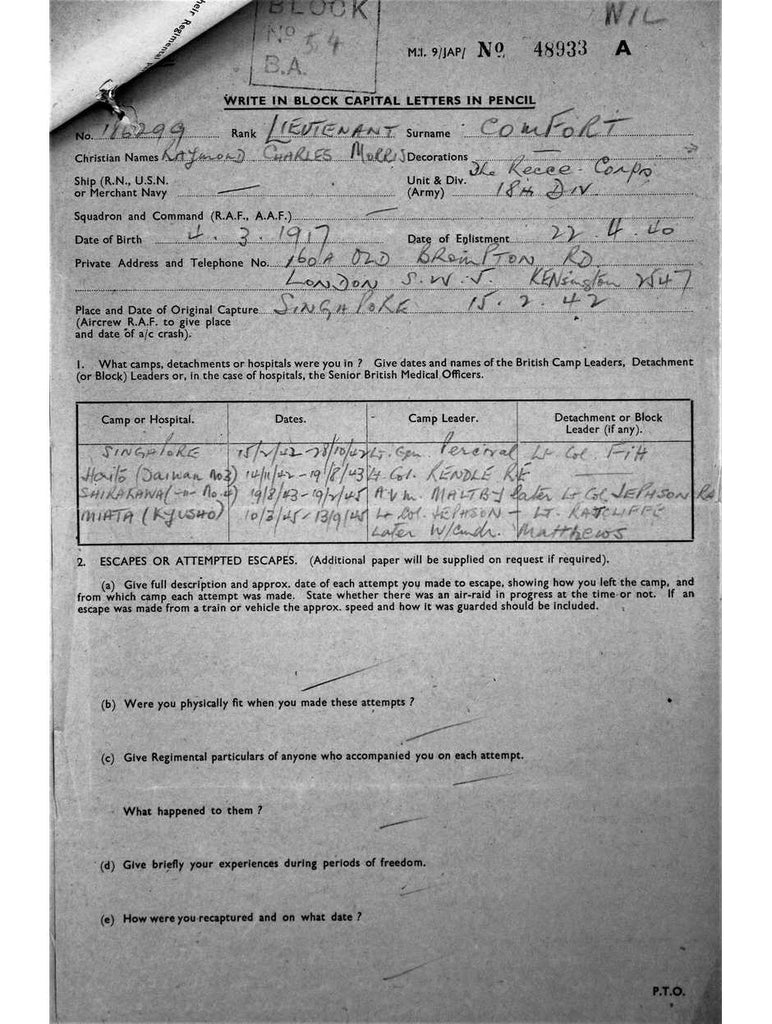 their Regimental
BLOCK
No 54
B.A.
NIL
M.I. 9/JAP/ No 48933 A
WRITE IN BLOCK CAPITAL LETTERS IN PENCIL
No. 116299 Rank LIEUTENANT Surname COMFORT
Christian Names RAYMOND CHARLES MORRIS Decorations —
Ship (R.N., U.S.N. or Merchant Navy — Unit & Div. (Army) The Recce Corps 18th Div
Squadron and Command (R.A.F., A.A.F.) —
Date of Birth 4. 3. 1917 Date of Enlistment 22. 4. 40
Private Address and Telephone No. 160A OLD BROMPTON RD.
LONDON S.W.5. KENsington 2547
Place and Date of Original Capture SINGAPORE 15. 2. 42
(Aircrew R.A.F. to give place
and date of a/c crash).
1. What camps, detachments or hospitals were you in ? Give dates and names of the British Camp Leaders, Detachment
(or Block) Leaders or, in the case of hospitals, the Senior British Medical Officers.
Camp or Hospital. Dates. Camp Leader. Detachment or Block Leader (if any).
SINGAPORE 15/2/42 - 28/10/42 Lt. Gen. Percival Lt Col. FitH
Heito (Taiwan No 3) 14/11/42 - 19/8/43 Lt Col. KENDLE RE —
SHIRAKAWA ( -"- No. 4) 19/8/43 - 19/2/45 A.V.M. MALTBY later Lt Col JEPHSON RA
MIATA (KYUSHO) 10/3/45 - 13/9/45 Lt Col. JEPHSON - LT. RATCLIFFE
Later W/Cmdr. Matthews
2. ESCAPES OR ATTEMPTED ESCAPES. (Additional paper will be supplied on request if required).
(a) Give full description and approx. date of each attempt you made to escape, showing how you left the camp, and
from which camp each attempt was made. State whether there was an air-raid in progress at the time or not. If an
escape was made from a train or vehicle the approx. speed and how it was guarded should be included.
(b) Were you physically fit when you made these attempts ?
(c) Give Regimental particulars of anyone who accompanied you on each attempt.
What happened to them ?
(d) Give briefly your experiences during periods of freedom.
(e) How were you recaptured and on what date ?
P.T.O.